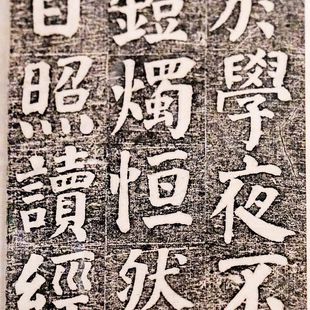 於學夜不
鐙燭恒然
自照讀經